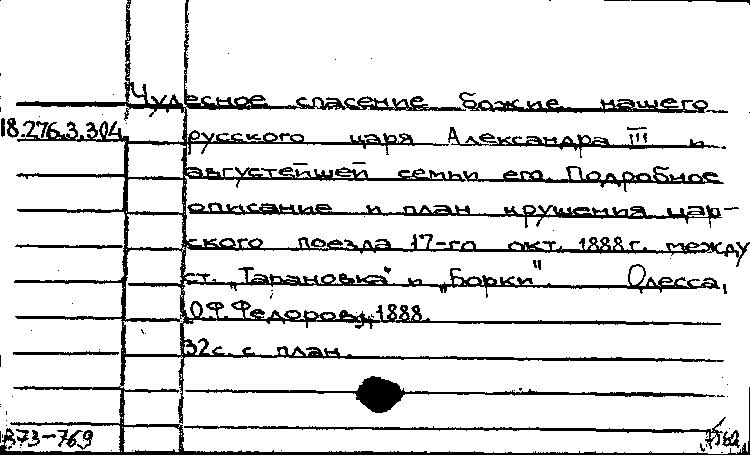 Чудесное спасение божие нашего
18.276.3.304 русского царя Александра III и
августейшей семьи его. Подробное
описание и план крушения цар-
ского поезда 17-го окт. 1888г. между
ст. „Тарановка" и „Борки". Одесса,
Ю.Ф. Федоров, 1888.
32с. с план.
В73-769